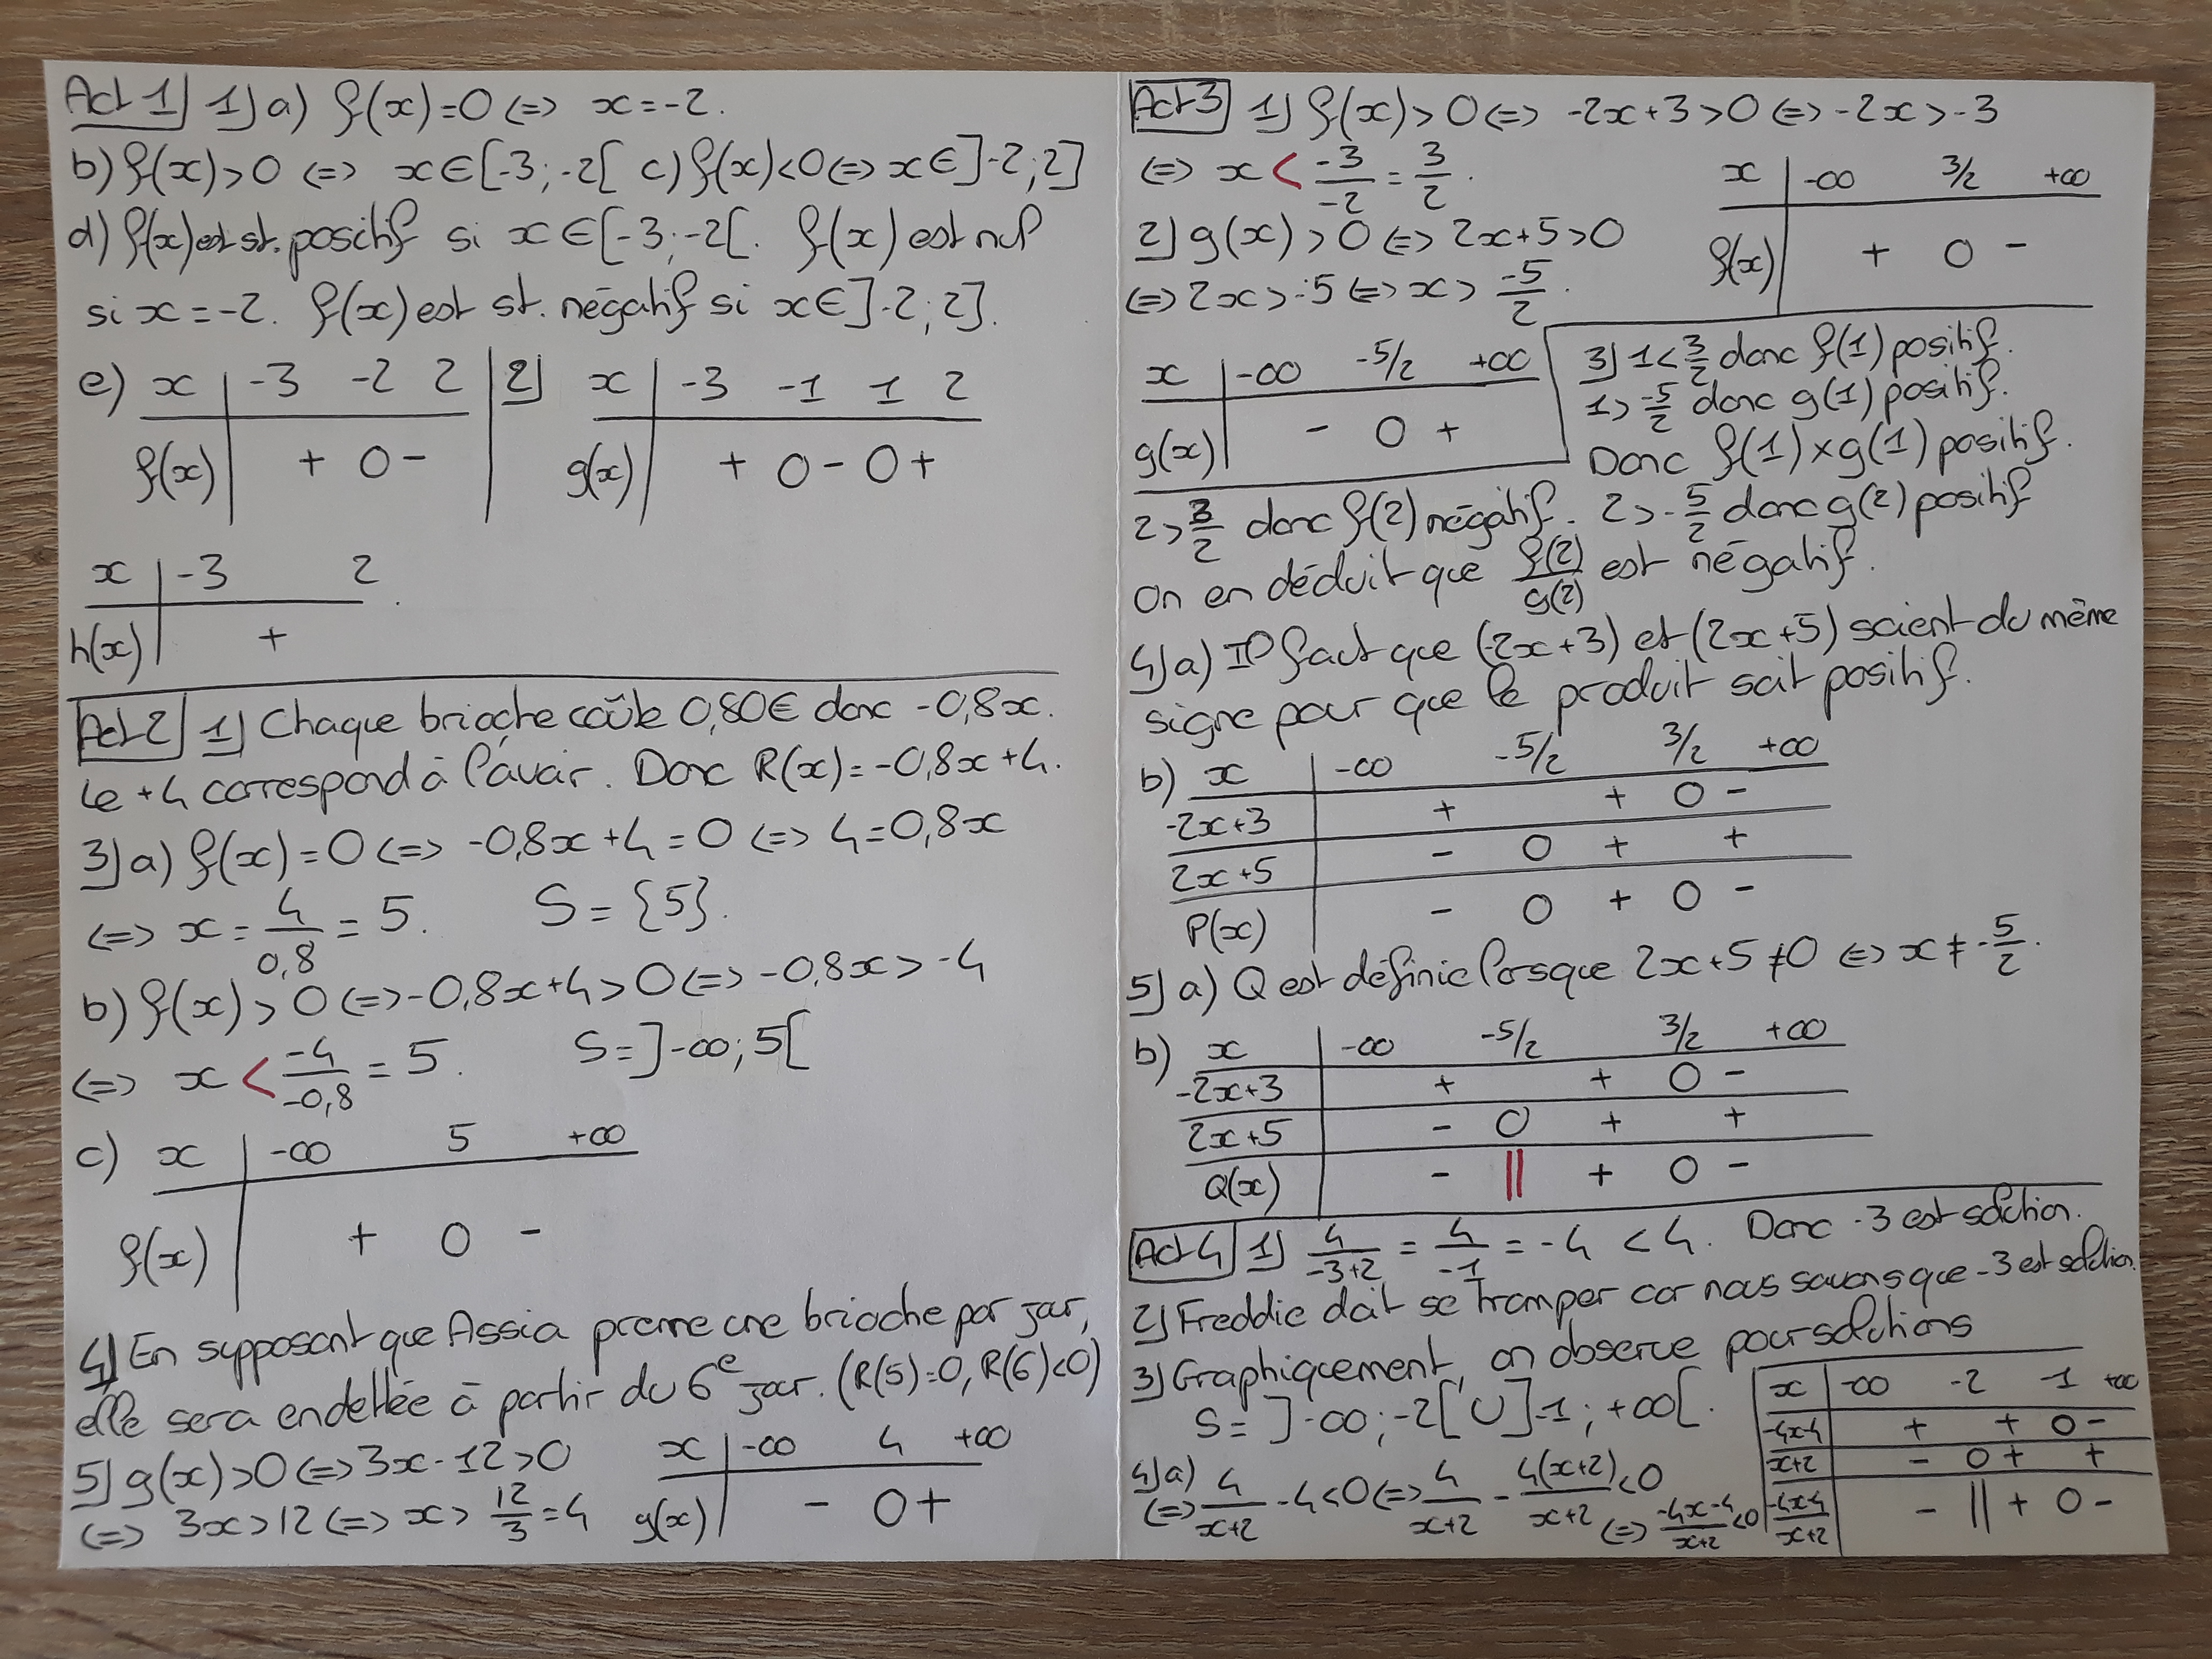 Act 1 1) a) f(x)=0 <=> x=-2.
b) f(x)>0 <=> x∈[-3;-2[ c) f(x)<0 <=> x∈]-2;2]
d) f(x) est st. positif si x∈[-3;-2[. f(x) est nul
si x=-2. f(x) est st. négatif si x∈]-2;2].
e) x | -3 -2 2
f(x) | + 0 -
2) x | -3 -1 1 2
g(x) | + 0 - 0 +
x | -3 2
h(x) | +
Act 2 1) Chaque brioche coûte 0,80€ donc -0,8x.
Le +4 correspond à l'avoir. Donc R(x)=-0,8x+4.
3) a) f(x)=0 <=> -0,8x+4=0 <=> 4=0,8x
<=> x = 4/0,8 = 5. S={5}.
b) f(x)>0 <=> -0,8x+4>0 <=> -0,8x>-4
<=> x < -4/-0,8 = 5. S=]-∞;5[
c) x | -∞ 5 +∞
f(x) | + 0 -
4) En supposant que Assia prenne une brioche par jour,
elle sera endettée à partir du 6e jour. (R(5)=0, R(6)<0)
5) g(x)>0 <=> 3x-12>0
<=> 3x>12 <=> x> 12/3 = 4
x | -∞ 4 +∞
g(x) | - 0 +
Act 3 1) f(x)>0 <=> -2x+3>0 <=> -2x>-3
<=> x < -3/-2 = 3/2.
x | -∞ 3/2 +∞
f(x) | + 0 -
2) g(x)>0 <=> 2x+5>0
<=> 2x>-5 <=> x> -5/2.
x | -∞ -5/2 +∞
g(x) | - 0 +
3) 1<3/2 donc f(1) positif.
1>-5/2 donc g(1) positif.
Donc f(1)×g(1) positif.
2>3/2 donc f(2) négatif. 2>-5/2 donc g(2) positif
on en déduit que f(2)/g(2) est négatif.
4) a) Il faut que (-2x+3) et (2x+5) soient du même
signe pour que le produit soit positif.
b) x | -∞ -5/2 3/2 +∞
-2x+3 | + + 0 -
2x+5 | - 0 + +
P(x) | - 0 + 0 -
5) a) Q est définie lorsque 2x+5≠0 <=> x≠-5/2.
b) x | -∞ -5/2 3/2 +∞
-2x+3 | + + 0 -
2x+5 | - 0 + +
Q(x) | - || + 0 -
Act 4 1) 4/-3+2 = 4/-1 = -4 < 4. Donc -3 est solution.
2) Freddie doit se tromper car nous savons que -3 est solution.
3) Graphiquement, on observe pour solutions
S= ]-∞;-2[ U ]-1;+∞[.
4) a)
<=> 4/x+2 -4<0 <=> 4/x+2 - 4(x+2)/x+2 <0
<=> -4x-4/x+2 <0
x | -∞ -2 -1 +∞
-4x-4 | + + 0 -
x+2 | - 0 + +
-4x-4/x+2 | - || + 0 -